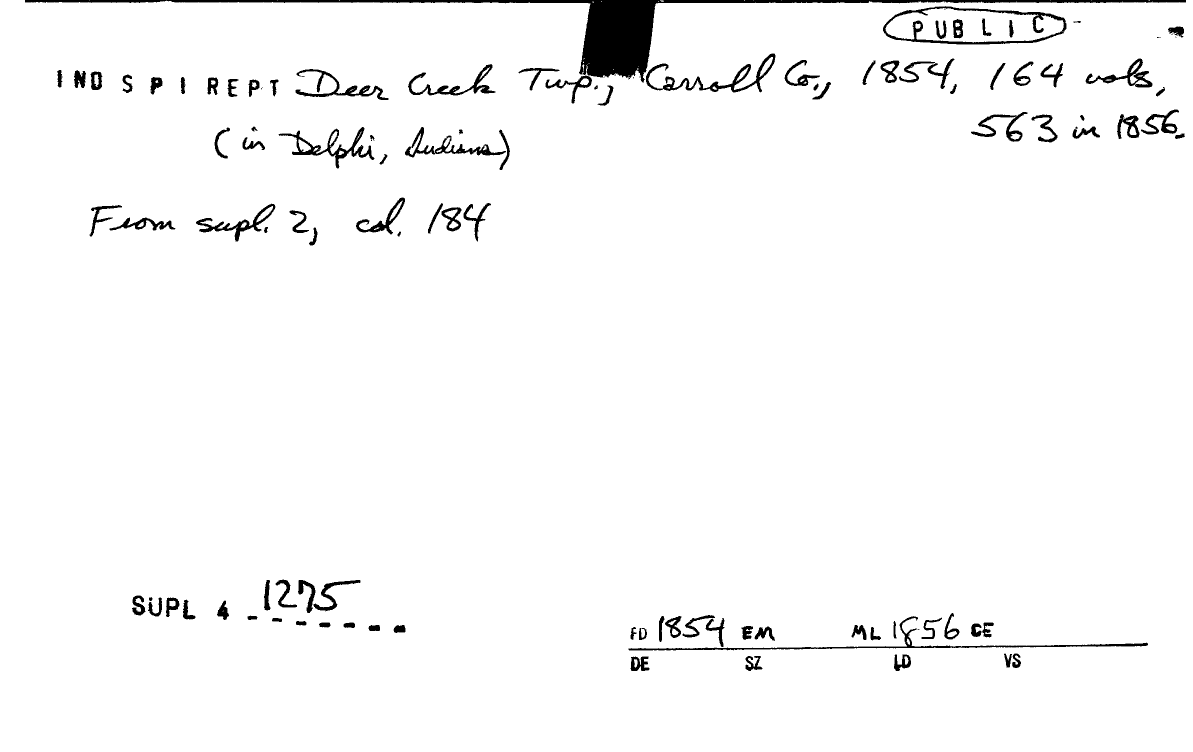 PUBLIC
IND S P I REPT Deer Creek Twp., Carroll Co., 1854, 164 vols,
563 in 1856.
(in Delphi, Indiana)
From supl. 2, col. 184
SUPL 4 1275
FD 1854 EM ML 1856 CE
DE SZ LD VS